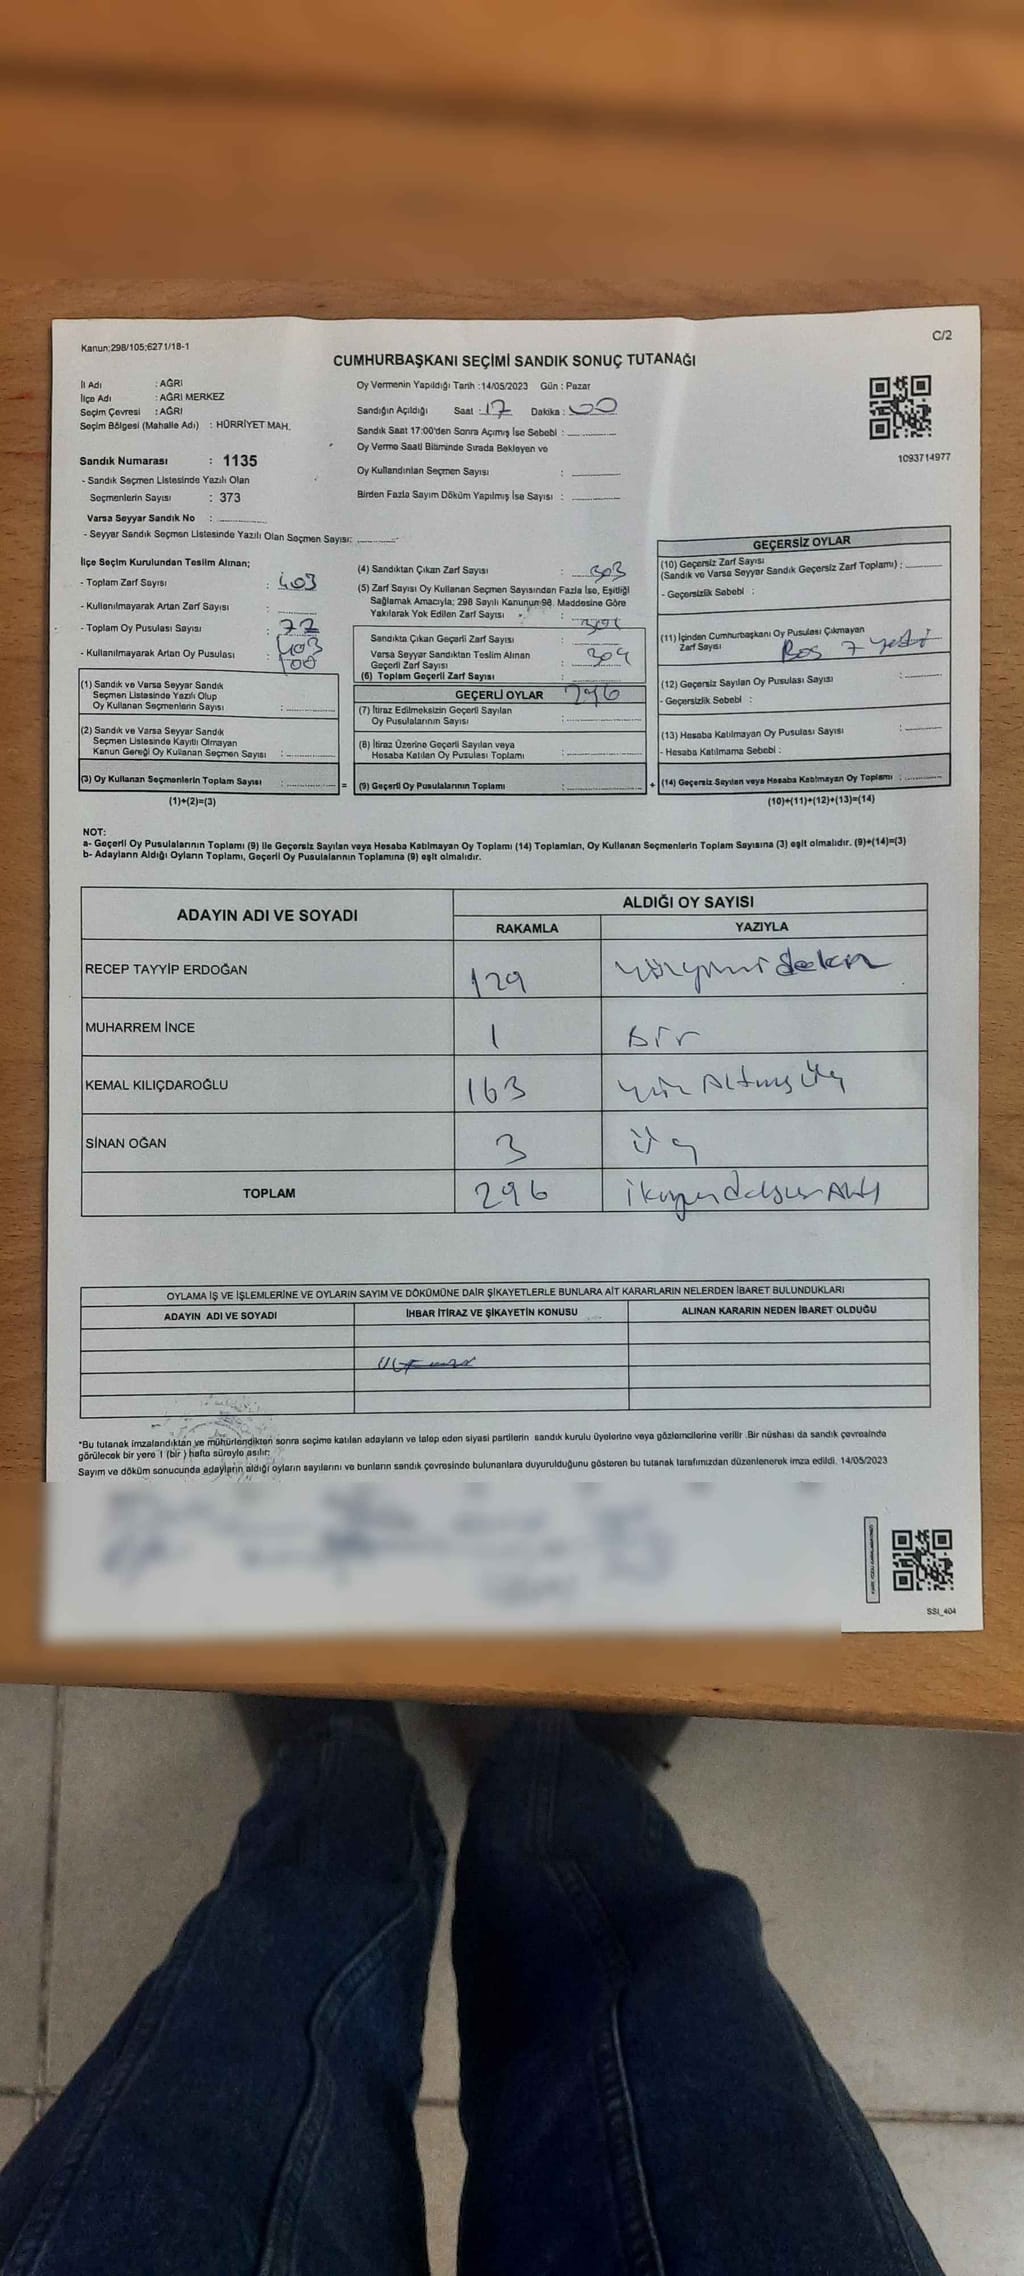 Kanun:298/105;6271/18-1
C/2
CUMHURBAŞKANI SEÇİMİ SANDIK SONUÇ TUTANAĞI
İl Adı : AĞRI
İlçe Adı : AĞRI MERKEZ
Seçim Çevresi : AĞRI
Seçim Bölgesi (Mahalle Adı) : HÜRRİYET MAH.
Sandık Numarası : 1135
- Sandık Seçmen Listesinde Yazılı Olan
Seçmenlerin Sayısı : 373
Varsa Seyyar Sandık No :
- Seyyar Sandık Seçmen Listesinde Yazılı Olan Seçmen Sayısı:
Oy Vermenin Yapıldığı Tarih :14/05/2023 Gün : Pazar
Sandığın Açıldığı Saat : 17 Dakika : 00
Sandık Saat 17:00'den Sonra Açımış İse Sebebi :
Oy Verme Saati Bitiminde Sırada Bekleyen ve
Oy Kullandırılan Seçmen Sayısı :
Birden Fazla Sayım Döküm Yapılmış İse Sayısı :
1093714977
İlçe Seçim Kurulundan Teslim Alınan;
- Toplam Zarf Sayısı : 403
- Kullanılmayarak Artan Zarf Sayısı :
- Toplam Oy Pusulası Sayısı : 77
403
- Kullanılmayarak Artan Oy Pusulası : 100
(1) Sandık ve Varsa Seyyar Sandık
Seçmen Listesinde Yazılı Olup
Oy Kullanan Seçmenlerin Sayısı :
(2) Sandık ve Varsa Seyyar Sandık
Seçmen Listesinde Kayıtlı Olmayan
Kanun Gereği Oy Kullanan Seçmen Sayısı :
(3) Oy Kullanan Seçmenlerin Toplam Sayısı : =
(1)+(2)=(3)
(4) Sandıktan Çıkan Zarf Sayısı : 303
(5) Zarf Sayısı Oy Kullanan Seçmen Sayısından Fazla İse, Eşitliği
Sağlamak Amacıyla; 298 Sayılı Kanunun 98. Maddesine Göre
Yakılarak Yok Edilen Zarf Sayısı :
Sandıkta Çıkan Geçerli Zarf Sayısı :
Varsa Seyyar Sandıktan Teslim Alınan
Geçerli Zarf Sayısı : 304
(6) Toplam Geçerli Zarf Sayısı :
GEÇERLİ OYLAR 296
(7) İtiraz Edilmeksizin Geçerli Sayılan
Oy Pusulalarının Sayısı :
(8) İtiraz Üzerine Geçerli Sayılan veya
Hesaba Katılan Oy Pusulası Toplamı :
(9) Geçerli Oy Pusulalarının Toplamı : +
GEÇERSİZ OYLAR
(10) Geçersiz Zarf Sayısı
(Sandık ve Varsa Seyyar Sandık Geçersiz Zarf Toplamı) :
- Geçersizlik Sebebi :
(11) İçinden Cumhurbaşkanı Oy Pusulası Çıkmayan
Zarf Sayısı : Boş 7 yedi
(12) Geçersiz Sayılan Oy Pusulası Sayısı :
- Geçersizlik Sebebi :
(13) Hesaba Katılmayan Oy Pusulası Sayısı :
- Hesaba Katılmama Sebebi :
(14) Geçersiz Sayılan veya Hesaba Katılmayan Oy Toplamı :
(10)+(11)+(12)+(13)=(14)
NOT:
a- Geçerli Oy Pusulalarının Toplamı (9) ile Geçersiz Sayılan veya Hesaba Katılmayan Oy Toplamı (14) Toplamları, Oy Kullanan Seçmenlerin Toplam Sayısına (3) eşit olmalıdır. (9)+(14)=(3)
b- Adayların Aldığı Oyların Toplamı, Geçerli Oy Pusulalarının Toplamına (9) eşit olmalıdır.
ADAYIN ADI VE SOYADI ALDIĞI OY SAYISI
RAKAMLA YAZIYLA
RECEP TAYYİP ERDOĞAN 129
MUHARREM İNCE 1 Bir
KEMAL KILIÇDAROĞLU 163 yüz Altmış üç
SİNAN OĞAN 3 üç
TOPLAM 296 ikiyüzdoksan Altı
OYLAMA İŞ VE İŞLEMLERİNE VE OYLARIN SAYIM VE DÖKÜMÜNE DAİR ŞİKAYETLERLE BUNLARA AİT KARARLARIN NELERDEN İBARET BULUNDUKLARI
ADAYIN ADI VE SOYADI İHBAR İTİRAZ VE ŞİKAYETİN KONUSU ALINAN KARARIN NEDEN İBARET OLDUĞU
*Bu tutanak imzalandıktan ve mühürlendikten sonra seçime katılan adayların ve talep eden siyasi partilerin sandık kurulu üyelerine veya gözlemcilerine verilir .Bir nüshası da sandık çevresinde
görülecek bir yere 1 (bir ) hafta süreyle asılır.
Sayım ve döküm sonucunda adayların aldığı oyların sayılarını ve bunların sandık çevresinde bulunanlara duyurulduğunu gösteren bu tutanak tarafımızdan düzenlenerek imza edildi. 14/05/2023
SSI_404